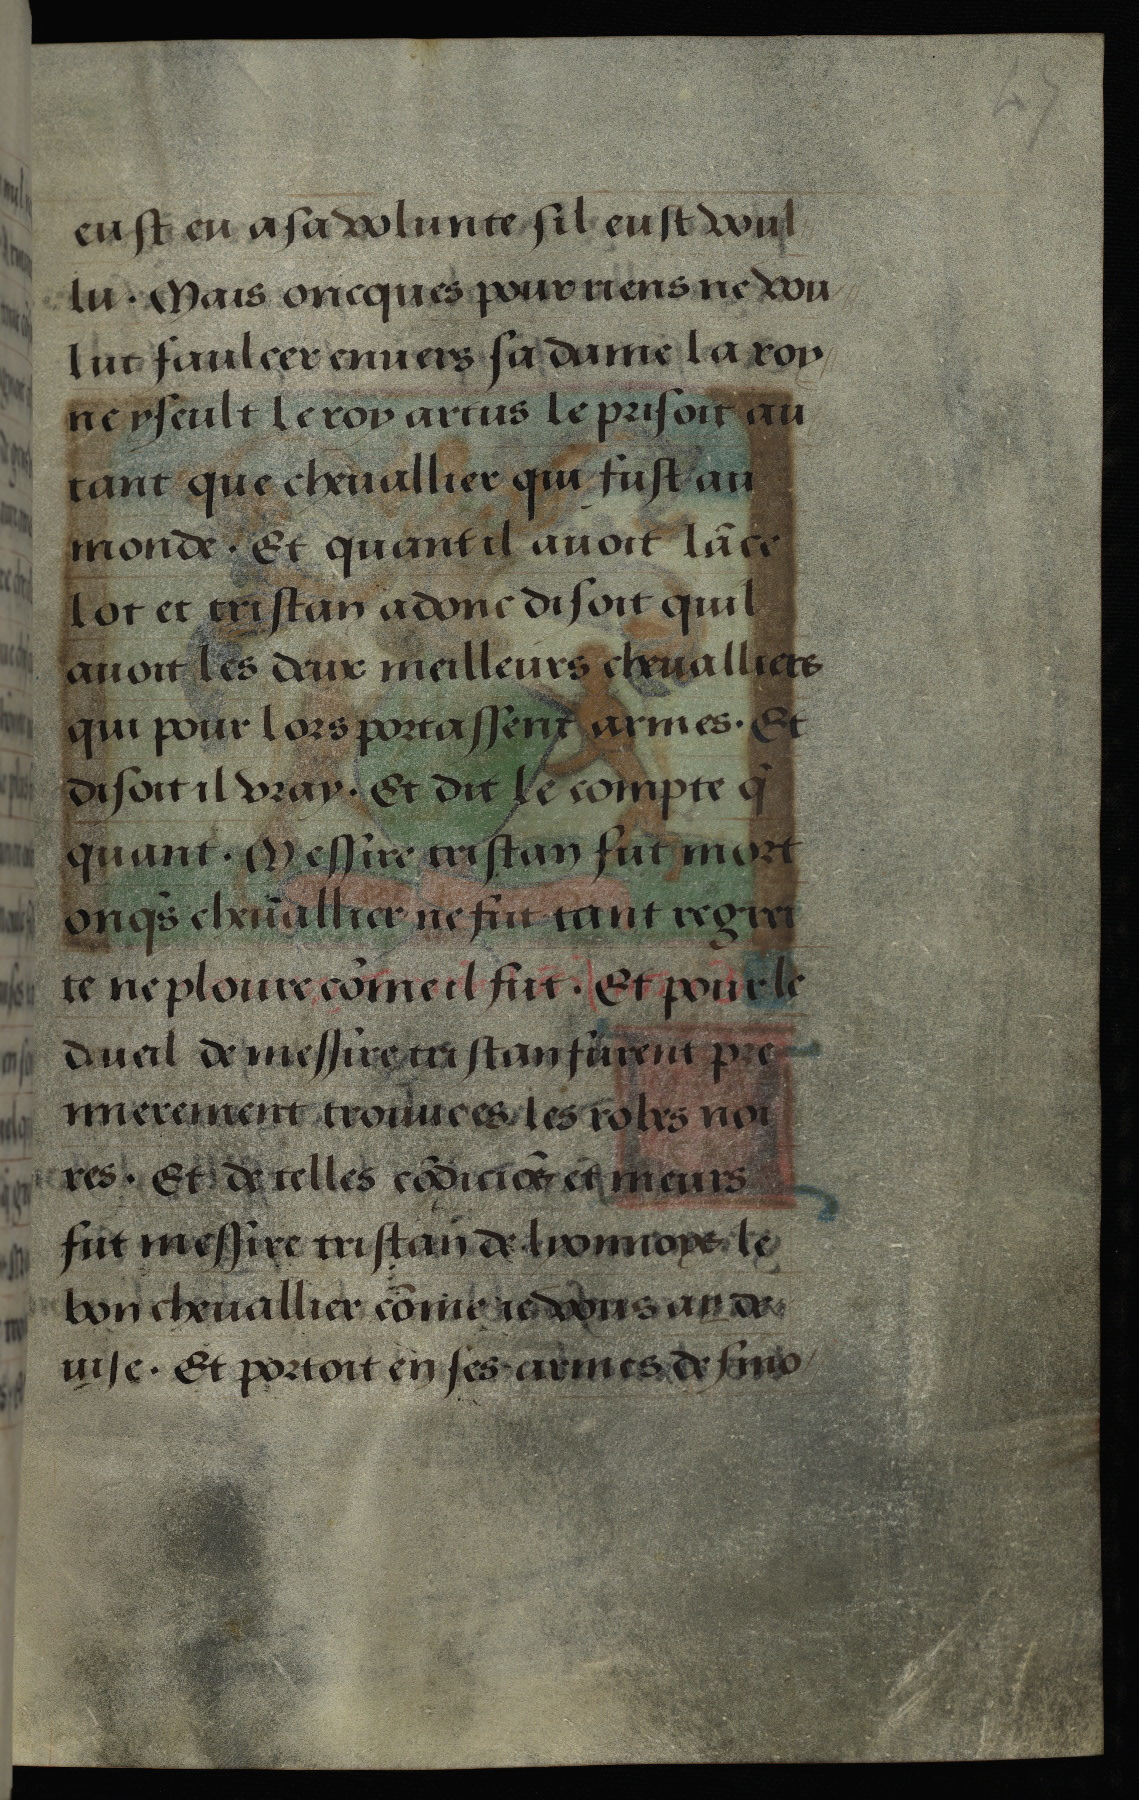 47
eust eu a sa volunte sil eust voul
lu. Mais oncques pour riens ne vou
lut faulcer envers sa dame la roy
ne yseult le roy artus le prisoit au
tant que chevallier qui fust au
monde. Et quant il avoit lãce
lot et tristan adonc disoit quil
avoit les deux meilleurs chevalliers
qui pour lors portassent armes. Et
disoit il vray. Et dit le compte q̃
quant. Messire tristan fut mort
onq̃s chevallier ne fut tant regret
te ne ploure cõme il fut. Et pour le
dueil de messire tristan furent pre
mierement trouvees les robes noi
res. Et de telles cõdiciõs et meurs
fut messire tristan de lyonnoys le
bon chevallier cõme ie vous ay de
vise. Et portoit en ses armes de sino